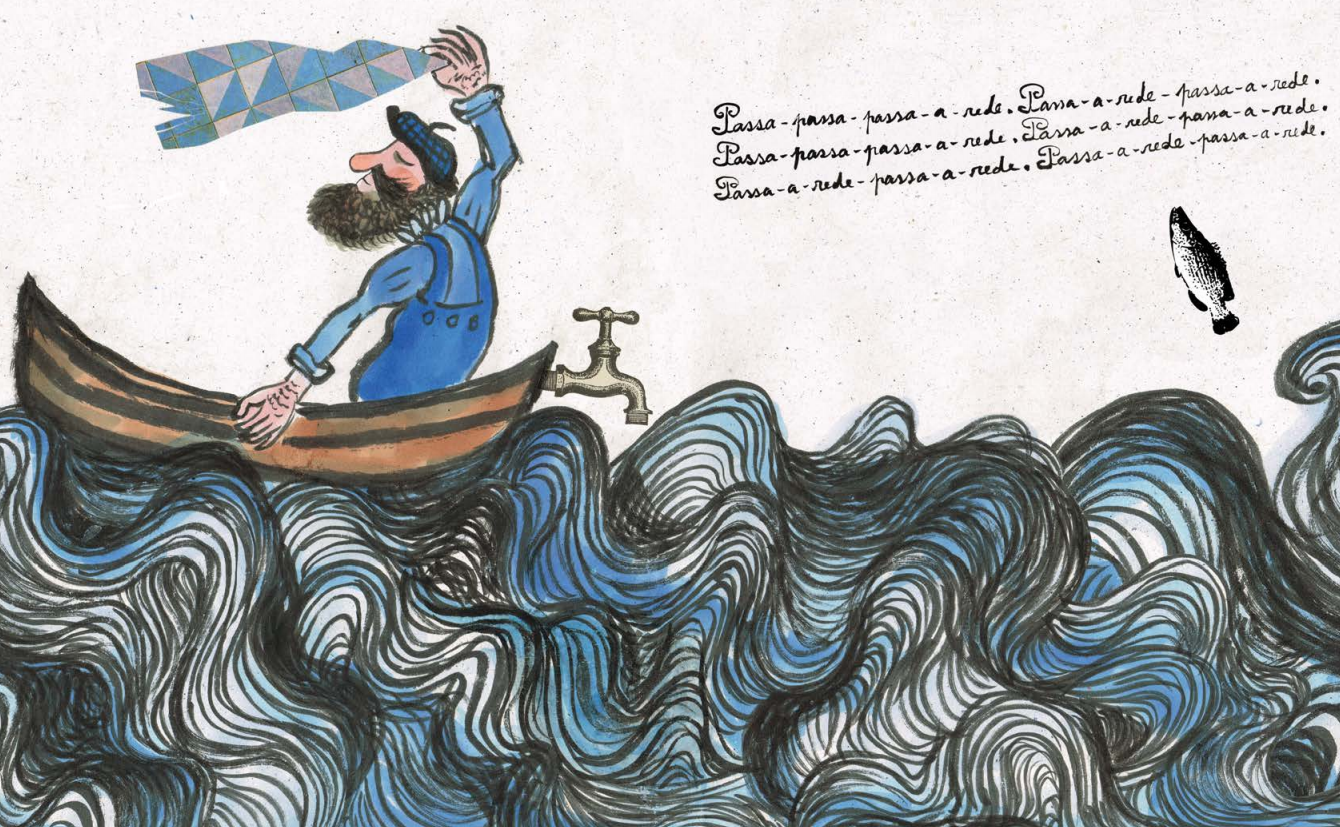 Passa-passa-passa-a-rede. Passa-a-rede-passa-a-rede.
Passa-passa-passa-a-rede. Passa-a-rede-passa-a-rede.
Passa-a-rede-passa-a-rede. Passa-a-rede-passa-a-rede.